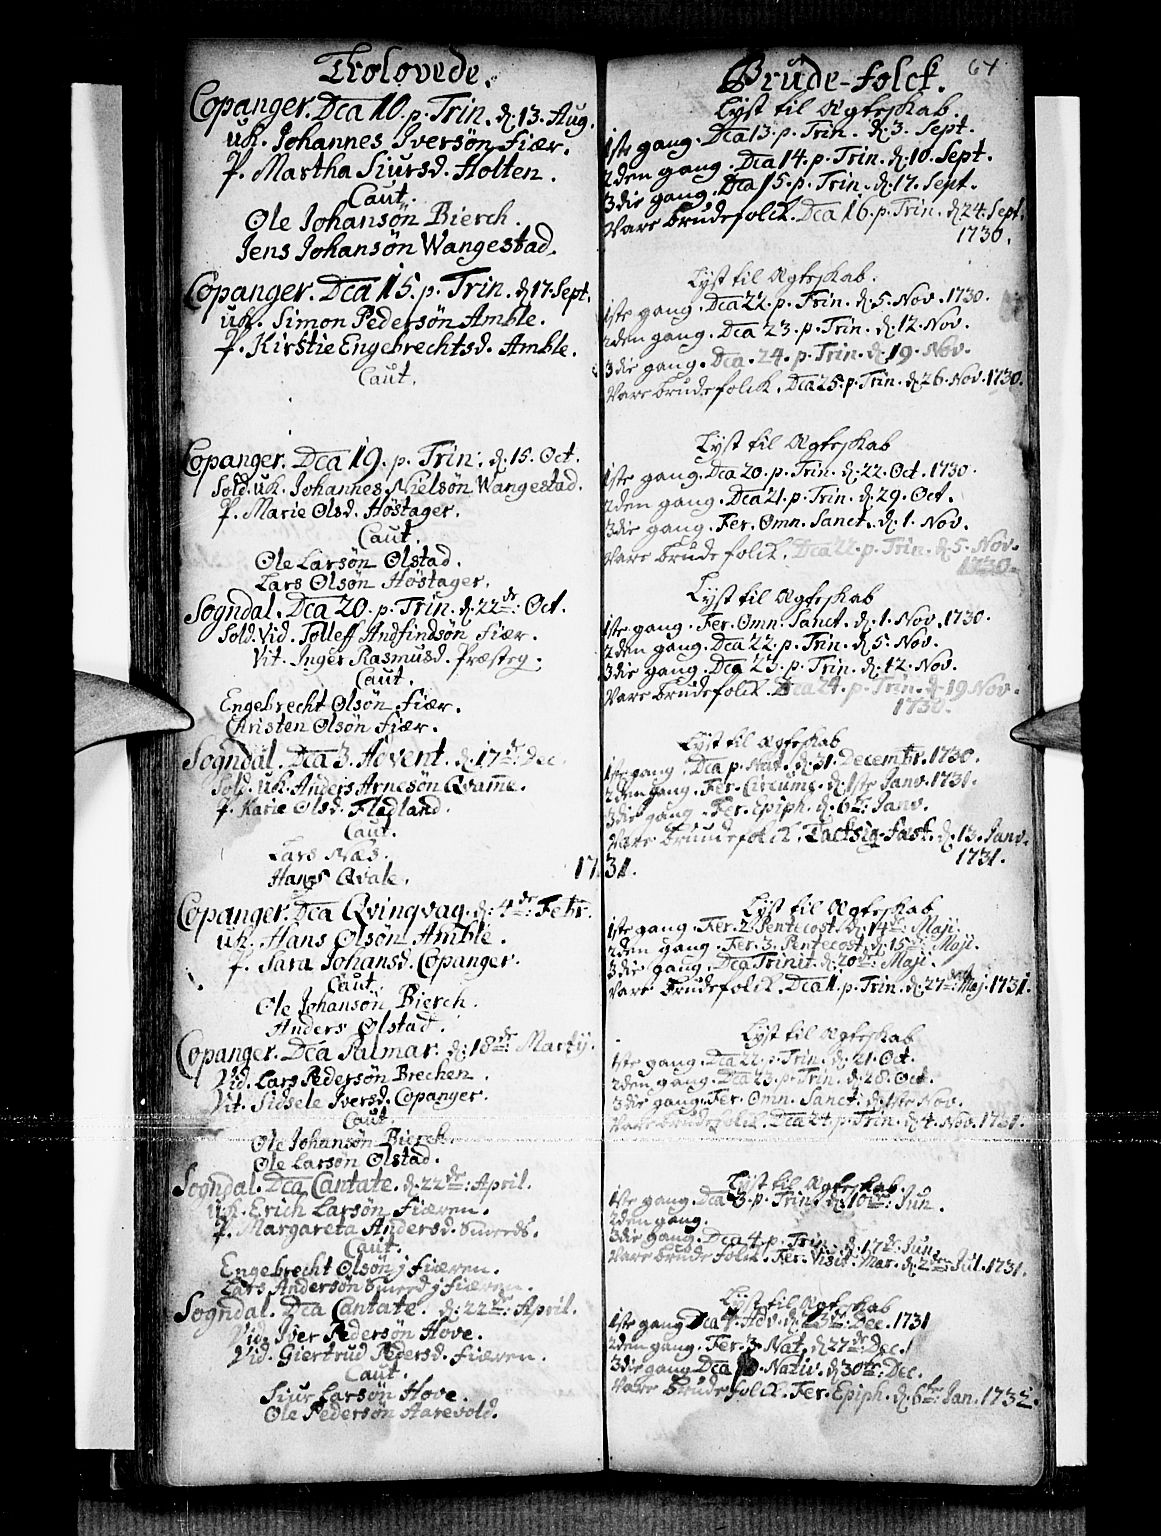 Trolovede.
Copanger. Dca 10. p. Trin. d. 13. Aug.
uk. Johannes Iversøn Fiær.
P. Martha Siursd. Holten.
Caut.
Ole Johansøn Bierch.
Jens Johansøn Wangestad.
Copanger. Dca 15. p. Trin. d. 17. Sept.
uk. Simon Pedersøn Amble.
P. Kirstie Engebrechtsd. Amble.
Caut.
Copanger. Dca 19. p. Trin. d. 15. Oct.
Sold. uk. Johannes Nielsøn Wangestad.
P. Marie Olsd. Høstager.
Caut.
Ole Larsøn Olstad.
Lars Olsøn Høstager.
Sogndal. Dca 20. p. Trin. d. 22de: Oct.
Sold. Vid. Tolleff Andfindsøn Fiær.
Vit. Inger Rasmusd. Præsteg.
Caut.
Engebrecht Olsøn Fiær.
Christen Olsøn Fiær.
Sogndal. Dca 3. Advent. d. 17de Dec.
Sold. uk. Anders Arnesøn Qvam̄e.
P. Karie Olsd. Fladland.
Caut.
Lars Næs.
Hans Qvale.
1731.
Copanger. Dca Qvinqvag. d. 4de: Febr.
uk. Hans Olsøn Amble.
P. Sara Johansd. Copanger.
Caut.
Ole Johansøn Bierch.
Anders Olstad.
Copanger. Dca Palmar. d. 18de: Martij.
Vid. Lars Pedersøn Brechen.
Vit. Sidsele Iversd. Copanger.
Caut.
Ole Johansøn Bierch.
Ole Larsøn Olstad.
Sogndal. Dca Cantate. d. 22de: April.
uk. Erich Larsøn Fiæren.
P. Margareta Andersd. Smeds.
Caut.
Engebrecht Olsøn j Fiæren.
Lars Andersøn Smed j Fiæren.
Sogndal. Dca Cantate. d. 22de: April.
Vid. Iver Pedersøn Hove.
Vid. Giertrud Pedersd. Fiæren.
Caut.
Siur Larsøn Hove.
Ole Pedersøn Aarevold.
Brude-folck. 64
Lyst til Ægteskab.
1ste gang. Dca 13. p. Trin. d. 3. Sept.
2den gang. Dca 14. p. Trin. d. 10. Sept.
3die gang. Dca 15. p. Trin. d. 17. Sept.
Vare Brudefolck. Dca 16. p. Trin. d. 24. Sept.
1730.
Lyst til Ægteskab.
1ste gang. Dca 22. p. Trin. d. 5. Nov. 1730.
2den gang. Dca 23. p. Trin. d. 12. Nov.
3die gang. Dca. 24. p. Trin. d. 19. Nov.
Vare Brudefolck. Dca 25. p. Trin. d. 26. Nov. 1730.
Lyst til Ægteskab
1ste gang. Dca 20. p. Trin. d. 22. Oct. 1730.
2den gang. Dca 21. p. Trin. d. 29. Oct.
3die gang. Fer. Omn. Sanct. d. 1. Nov.
Vare Brudefolck. Dca 22. p. Trin. d. 5. Nov.
1730.
Lyst til Ægteskab
1ste gang. Fer. Omn. Sanct. d. 1. Nov. 1730.
2den gang. Dca 22. p. Trin. d. 5. Nov.
3die gang. Dca 23. p. Trin. d. 12. Nov.
Vare Brudefolck. Dca 24. p. Trin. d. 19 Nov.
1730.
Lyst til Ægteskab
1ste gang. Dca p. Nat. d. 31. Decembr. 1730.
2den gang. Fer. Circumc. d. 1ste Janv. 1731.
3die gang. Fer. Epiph. d. 6te: Janv.
Vare Bruudefolck. Tacksig. fæst. d. 13. Janv.
1731.
Lyst til Ægteskab
1ste gang. Fer. 2. Pentecost. d. 14de: Maji.
2den gang. Fer. 3. Pentecost. d. 15de: Maji.
3die gang. Dca Trinit. d. 20de: Maji.
Vare Brudefolck. Dca 1. p. Trin. d. 27de: Maj. 1731.
Lyst til Ægteskab
1ste gang. Dca 22. p. Trin. d. 21. Oct.
2den gang. Dca 23. p. Trin. d. 28. Oct.
3die gang. Fer. Omn. Sanct. d. 1ste Nov.
Vare Brudefolck. Dca 24. p. Trin. d. 4. Nov. 1731.
Lyst til Ægteskab
1ste gang. Dca 3. p. Trin. d. 10de: Jun.
2den gang.
3die gang. Dca 4. p. Trin. d. 17de Jun.
Vare Brudefolck. Fer. Visit. Mar. d. 2den: Jul. 1731.
Lyst til Ægteskab
1ste gang Dca 4. Adv. d. 23de: Dec. 1731
2den gang. Fer. 3. Nat. d. 27de: Dec.
3die gang Dca p. Nativ. d. 30te: Dec.
Vare Brudefolck. Fer. Epiph. d. 6te: Jan. 1732.